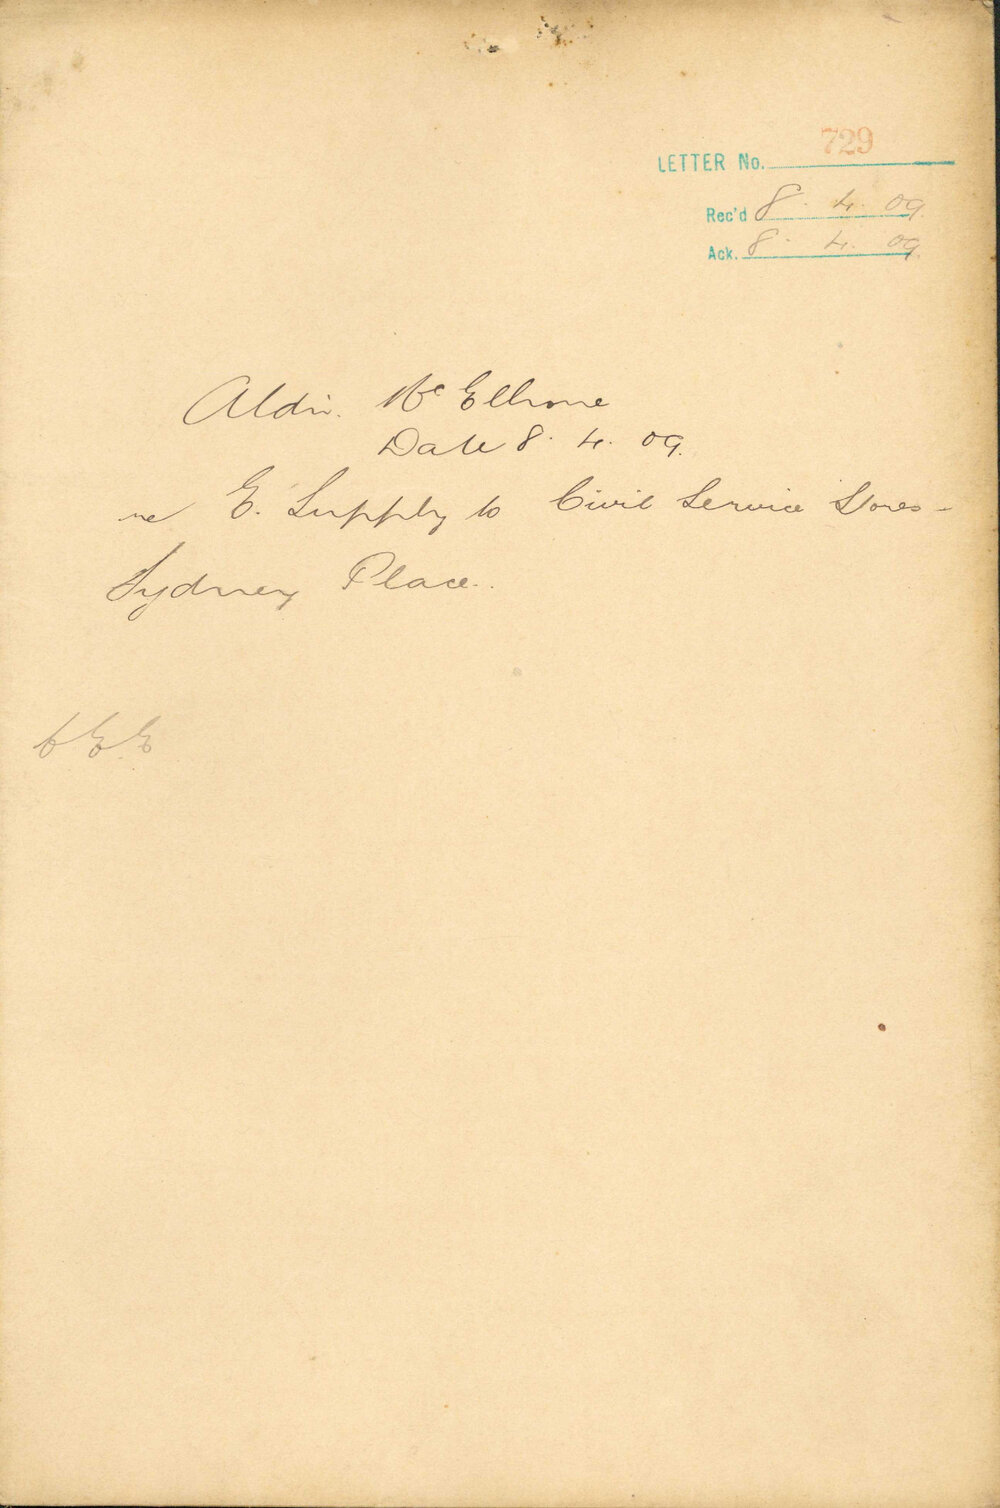 LETTER No. 729
Rec'd 8. 4. 09.
Ack. 8. 4. 09.
Aldn. McElhone
Date 8. 4. 09.
re E. Supply to Civil Service Stores -
Sydney Place.
C.E.E